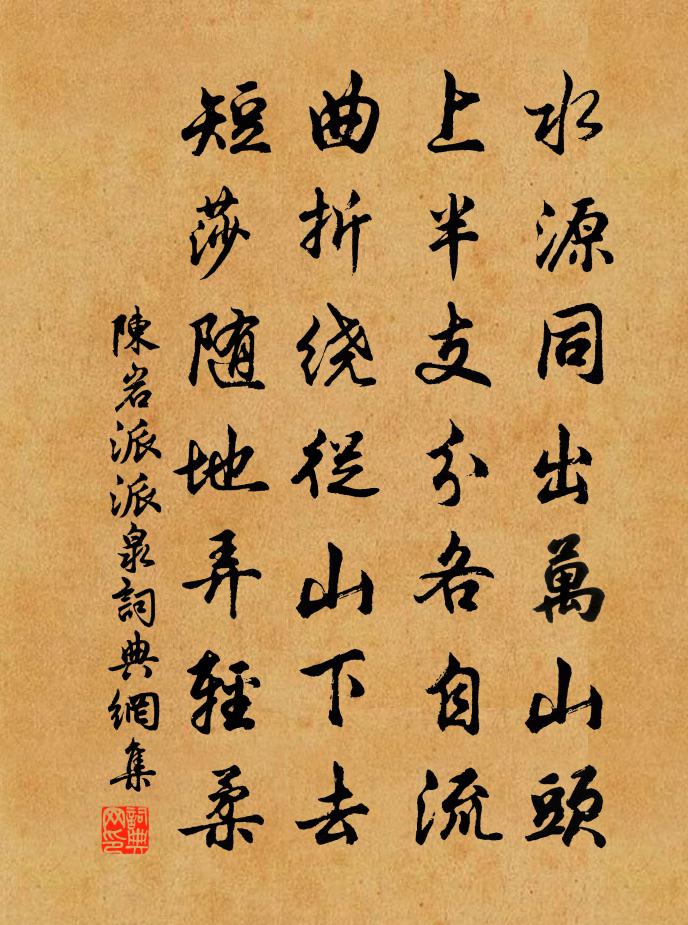 水源同出萬山頭
上半支分各自流
曲折绕從山下去
短莎随地弄輕柔
陳岩派派泉詞典網集
詞典网印